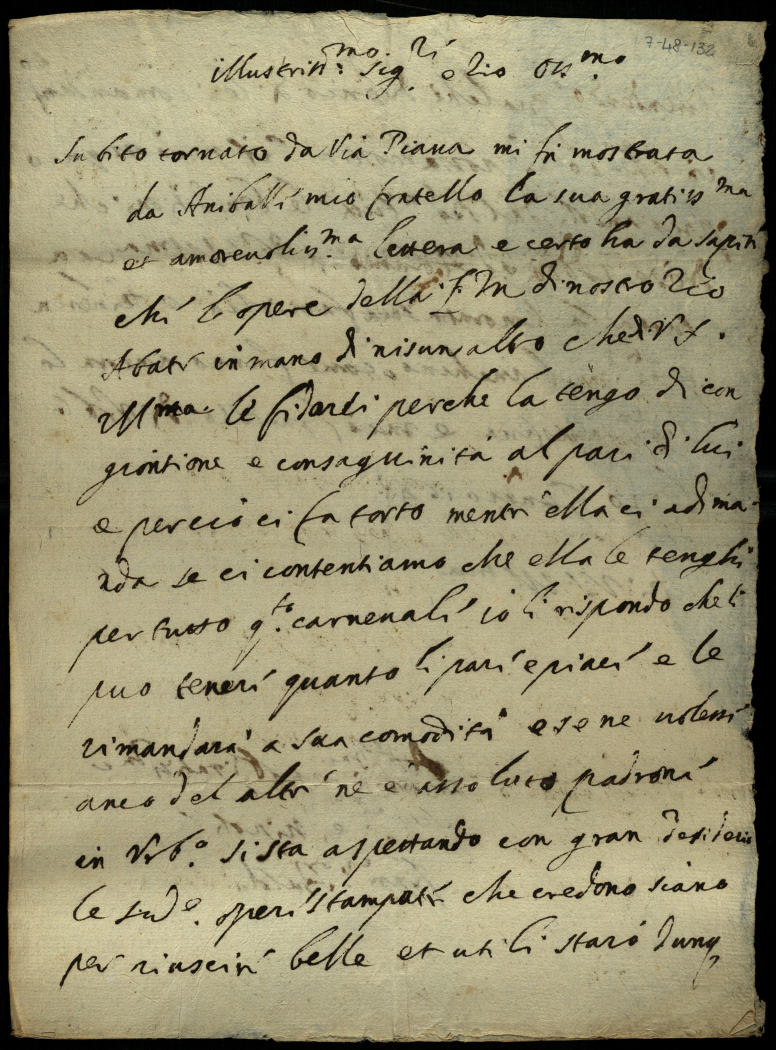 7-48-132
Illustriss:mo Sig.ri e Zio Oss.mo
Subito tornato da Via Piana mi fu mostrata
da Aniballi mio fratello la sua gratiss.ma
et amorevoliss.ma lettera e certo ha da sapiri
chi l'opere della f: M di nostro Zio
Abati in mano di nisun altro che di V S.
Ill.ma le fidarei perche la tengo di con
giontione e consaguinità al pari di lui
e perciò ci fa torto mentri ella ci adima-
nda se ci contentiamo che ella le tenghi
per tutto q.to carnevali io li rispondo che li
puo teneri quanto li pari e piaci e le
rimandarà a sua comodità e se ne volessi
anco del altri ne è assoluto padroni
in Urb.o si sta aspettando con gran desiderio
le sud.e operi stampati che credono siano
per riusciri belle et utili starò dunq